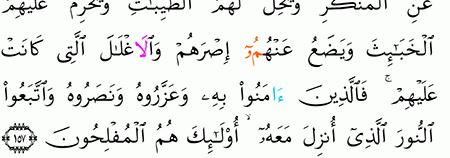 عَنِ الْمُنْكَرِ وَيُحِلُّ لَهُمُ الطَّيِّبَاتِ وَيُحَرِّمُ عَلَيْهِمُ
الْخَبَائِثَ وَيَضَعُ عَنْهُمُۥٓ إِصْرَهُمْ وَالَاغْلَالَ الَّتِي كَانَتْ
عَلَيْهِمْ ۚ فَالَّذِينَ ءَامَنُوا بِهِۦ وَعَزَّرُوهُ وَنَصَرُوهُ وَاتَّبَعُوا
النُّورَ الَّذِيٓ أُنزِلَ مَعَهُۥٓ ۙ أُوْلَٰٓئِكَ هُمُ الْمُفْلِحُونَ ١٥٧